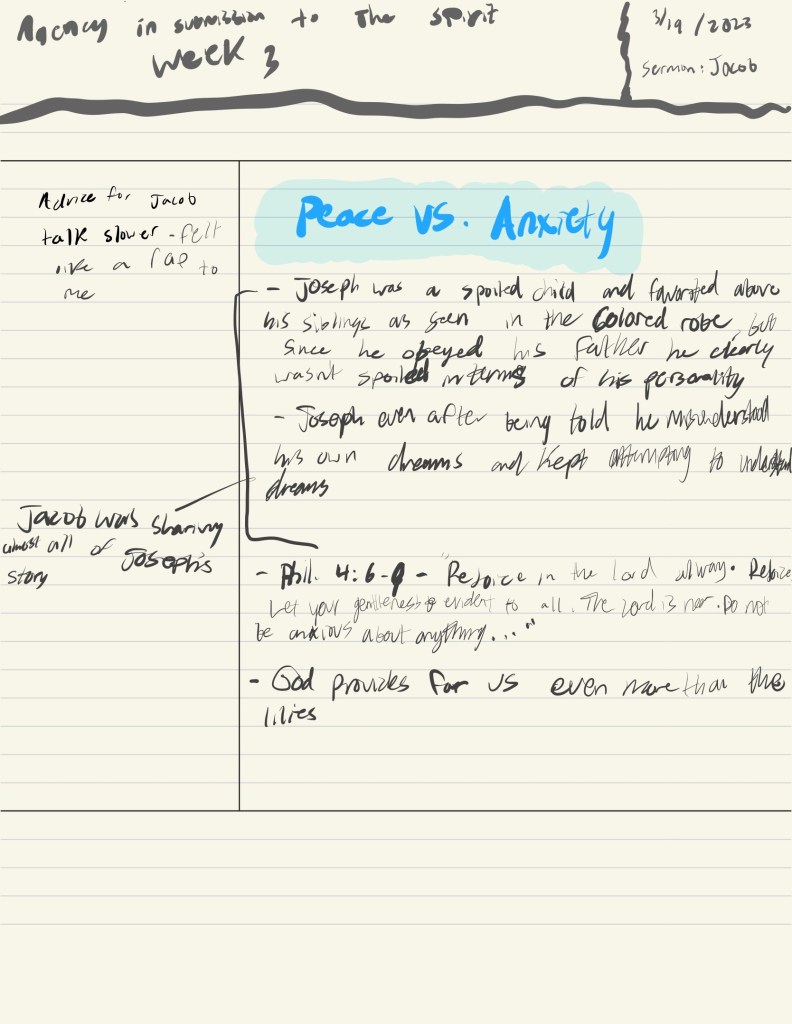 Agency in submission to the spirit
Week 3
3/19/2023
Sermon: Jacob
Advice for Jacob
talk slower - felt
like a rap to
me
Peace vs. Anxiety
- Joseph was a spoiled child and favorited above
his siblings as seen in the Colored robe, but
since he obeyed his father he clearly
wasnt spoiled in terms of his personality
- Joseph even after being told he misunderstood
his own dreams and kept attempting to understand
dreams
Jacob was sharing
almost all of Joseph's
story
- Phil. 4:6-9 - "Rejoice in the Lord always. Rejoice
Let your gentleness be evident to all. The Lord is near. Do not
be anxious about anything..."
- God provides for us even more than the
lilies